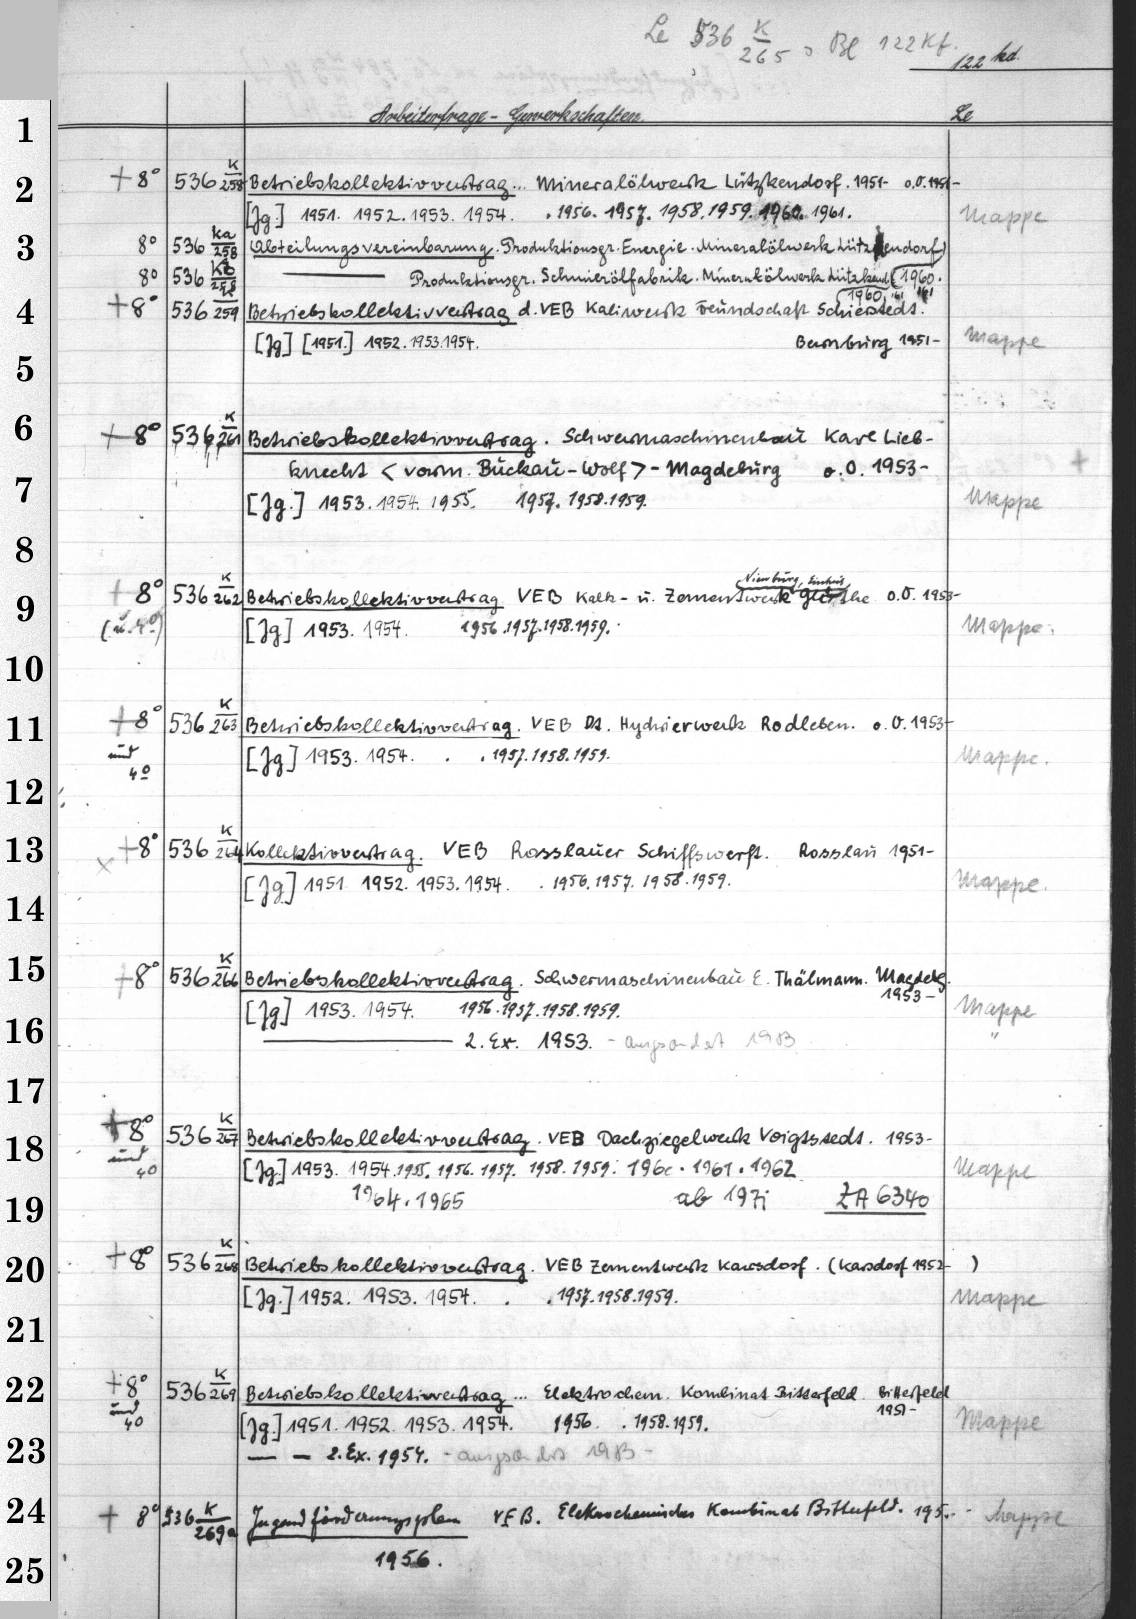 Le 536 K/265, Bl 122 Kf.
122 kd.
Arbeiterfrage - Gewerkschaften. Le
1
2 + 8° 536 K/258 Betriebskollektivvertrag... Mineralölwerk Lützkendorf. 1951- o.O. 1951-
[Jg.] 1951. 1952. 1953. 1954. . 1956. 1957. 1958. 1959. 1960. 1961. Mappe
3 8° 536 Ka/258 Abteilungsvereinbarung. Produktionsgr. Energie. Mineralölwerk Lützkendorf
8° 536 Kb/258 Produktionsgr. Schmierölfabrik. Mineralölwerk Lützkend. 1960.
1960. 61
4 + 8° 536 K/259 Betriebskollektivvertrag d. VEB Kaliwerk Freundschaft Schierstedt.
[Jg] [1951.] 1952. 1953. 1954. Bernburg 1951- Mappe
5
6 + 8° 536 K/261 Betriebskollektivvertrag. Schwermaschinenbau Karl Lieb-
knecht < vorm. Buckau-Wolf > - Magdeburg o.O. 1953- +
7 [Jg.] 1953. 1954. 1955. 1957. 1958. 1959. Mappe
8
Nienburg,
9 + 8° 536 K/262 Betriebskollektivvertrag VEB Kalk- u. Zementwerk o.O. 1953-
(u. 4°) [Jg] 1953. 1954. 1956. 1957. 1958. 1959. Mappe.
10
11 + 8° 536 K/263 Betriebskollektivvertrag. VEB Dt. Hydrierwerk Rodleben. o.O. 1953-
und 4° [Jg] 1953. 1954. . . 1957. 1958. 1959. Mappe.
12
13 × + 8° 536 K/264 Kollektivvertrag. VEB Rosslauer Schiffswerft. Rosslau 1951-
[Jg] 1951 1952. 1953. 1954. . 1956. 1957. 1958. 1959. Mappe.
14
15 + 8° 536 K/266 Betriebskollektivvertrag. Schwermaschinenbau E. Thälmann. Magdebg.
1953-
[Jg] 1953. 1954. 1956. 1957. 1958. 1959. Mappe
16 2. Ex. 1953. - ausgesondert 1983 "
17
18 + 8° 536 K/267 Betriebskollektivvertrag. VEB Dachziegelwerk Voigtstedt. 1953-
und 4° [Jg] 1953. 1954. 1955. 1956. 1957. 1958. 1959. 1960. 1961. 1962 Mappe
19 1964. 1965 ab 1971 ZA 6340
20 + 8° 536 K/268 Betriebskollektivvertrag. VEB Zementwerk Karsdorf. (Karsdorf 1952- )
[Jg.] 1952. 1953. 1954. . . 1957. 1958. 1959. Mappe
21
22 + 8° 536 K/269 Betriebskollektivvertrag... Elektrochem. Kombinat Bitterfeld Bitterfeld
1951-
und 4° [Jg.] 1951. 1952. 1953. 1954. 1956. . 1958. 1959. Mappe
23 — — 2. Ex. 1954. - ausgesondert 1983 -
24 + 8° 536 K/269a Jugendförderungsplan VEB. Elektrochemisches Kombinat Bitterfeld. 195.- Mappe
1956.
25